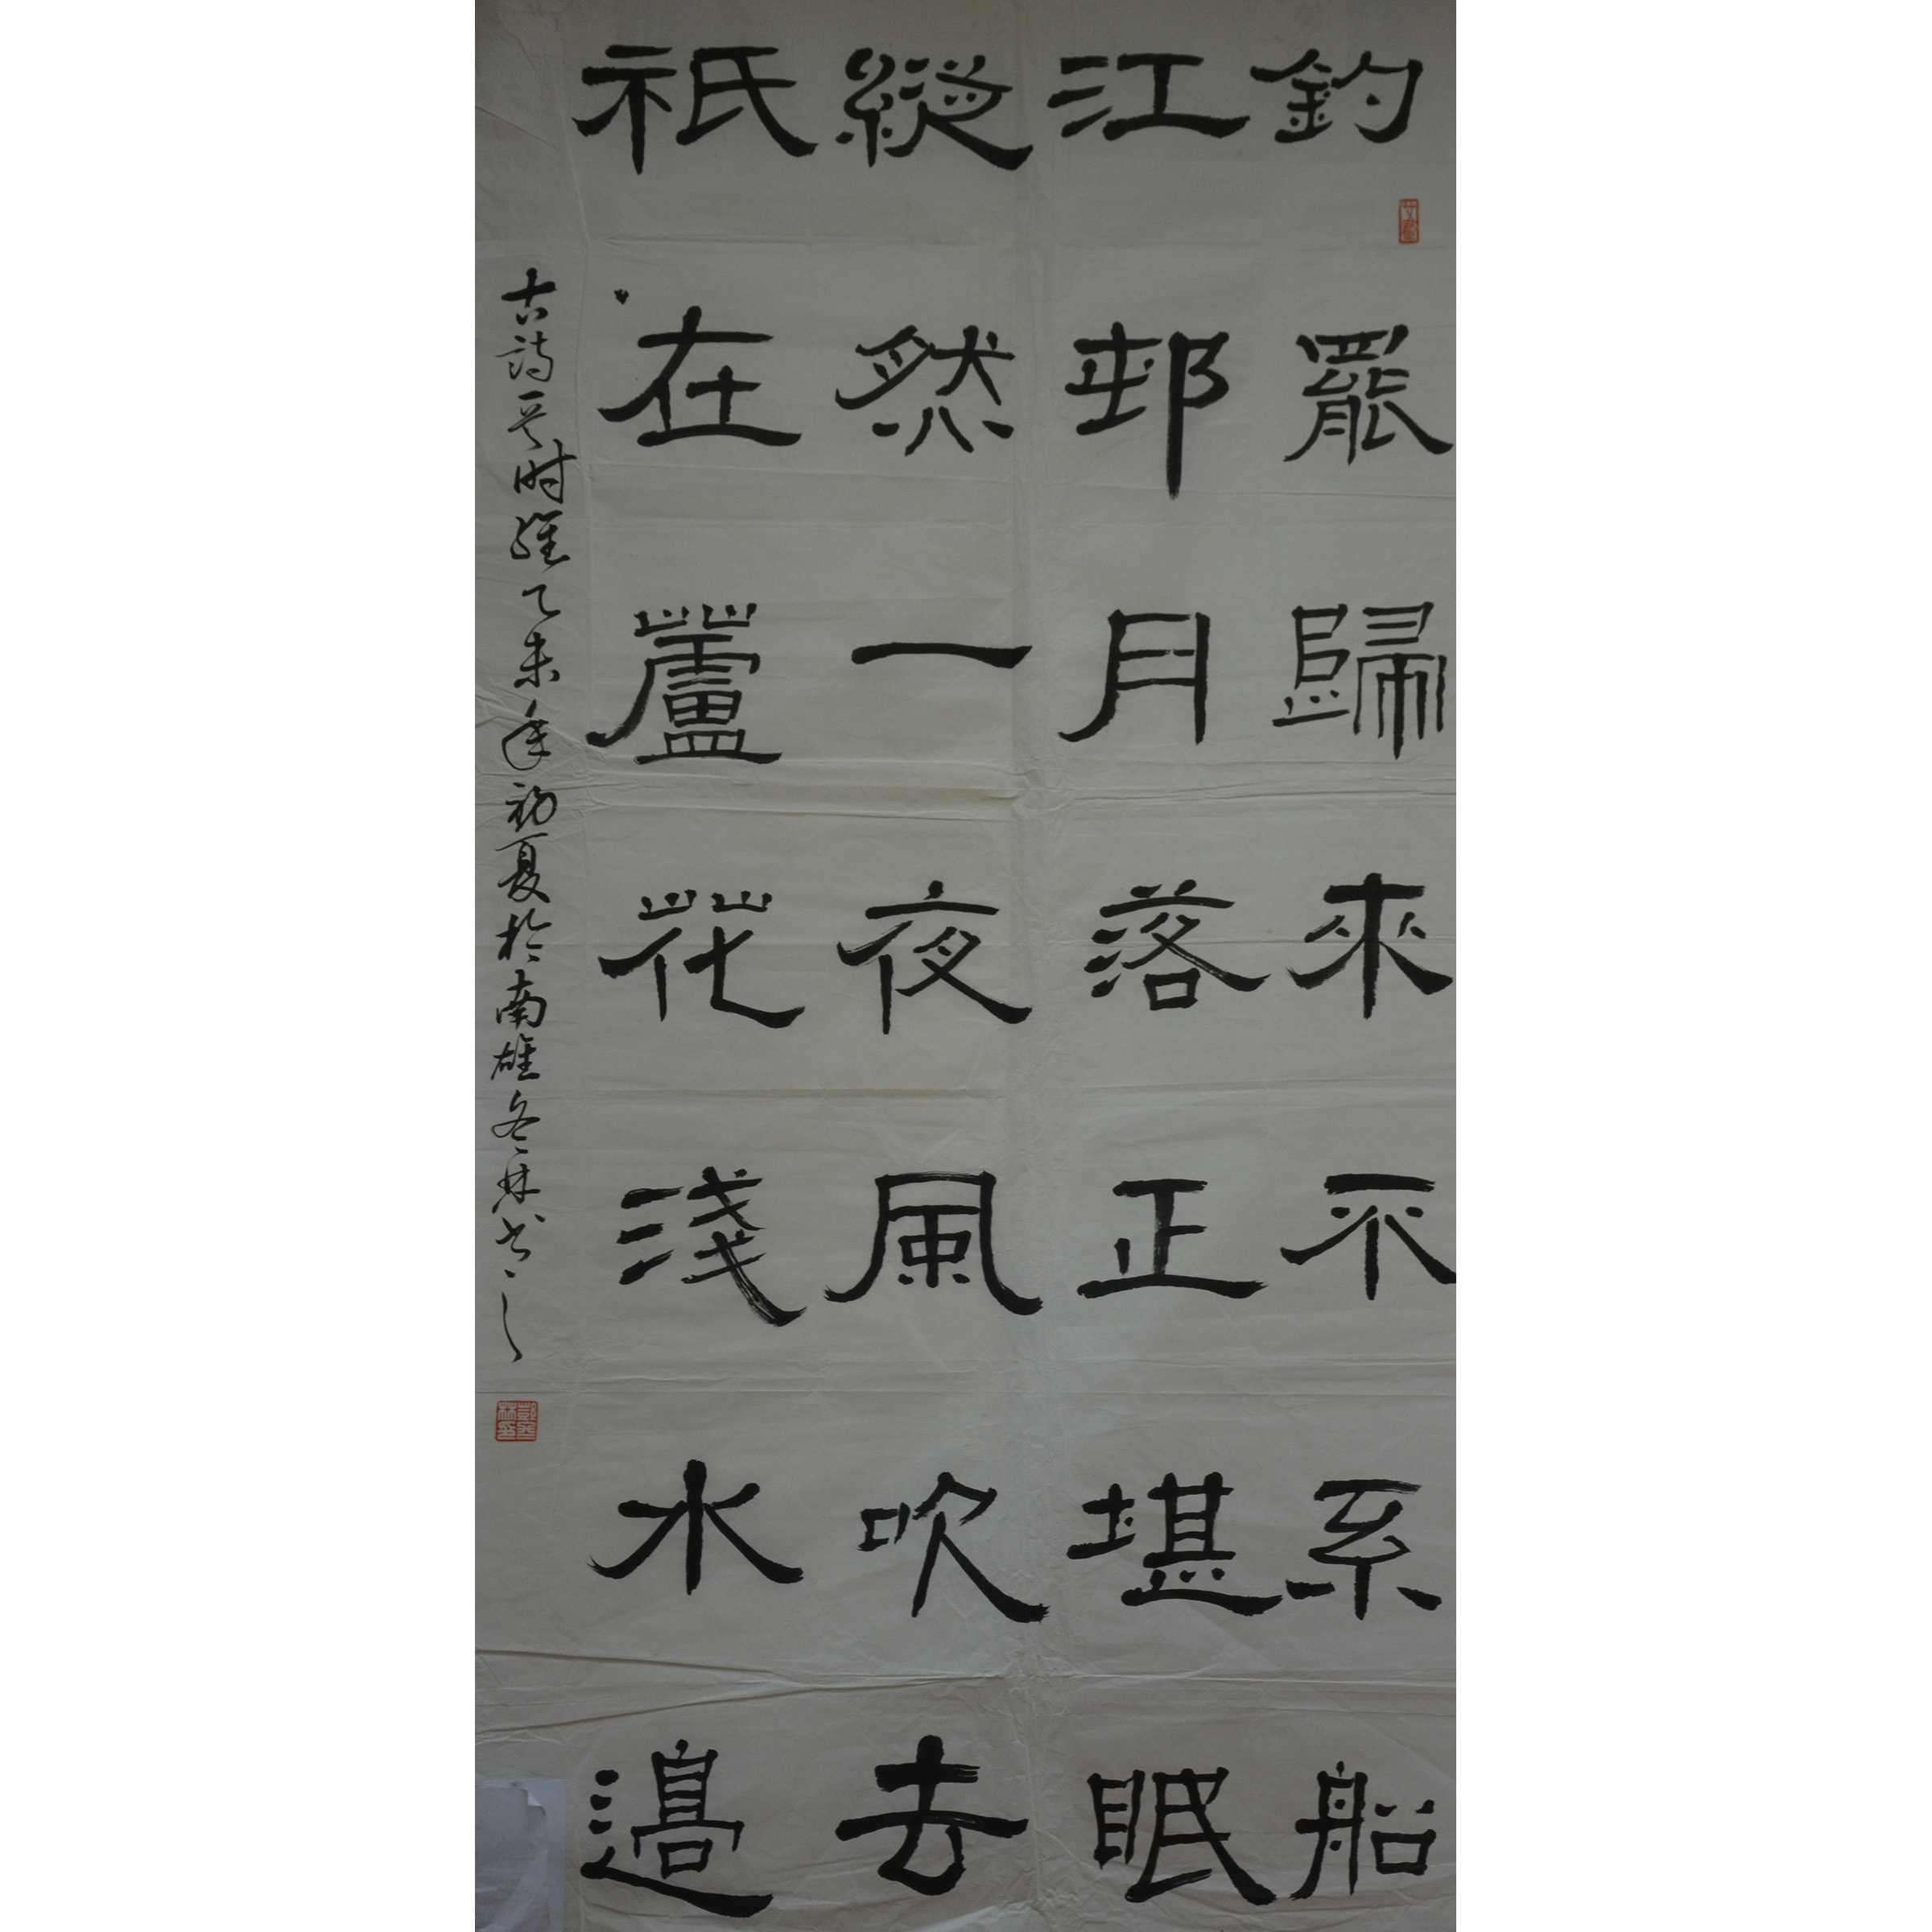 釣罷歸來不系船
江邨月落正堪眠
縱然一夜風吹去
祇在蘆花淺水邊
古詩一首时维乙未年初夏於南雄冬林书之